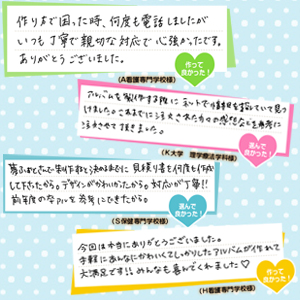 作りまで困った時、何度も電話しましたが
いつも丁寧で親切な対応で心強かったです。
ありがとうございました。
作って
良かった！
(A看護専門学校様)
アルバムを製作する際にネットで情報を探していて見つ
けました。これまでに注文された方々の感想などを参考に
注文させて頂きました。
選んで
良かった！
(K大学　理学療法学科様)
夢ふぉとさんで制作を決めるまでに見積り書を何度も作成
して下さったから。デザインがかわいかったから。対応が丁寧!!
前年度のアルバムを参考にできたから。
選んで
良かった！
(S保健専門学校様)
今回は本当にありがとうございました。
手軽にあんなにかわいくてしっかりしたアルバムが作れて
大満足です!!みんなも喜んでくれました♡
作って
良かった！
(H看護専門学校様)